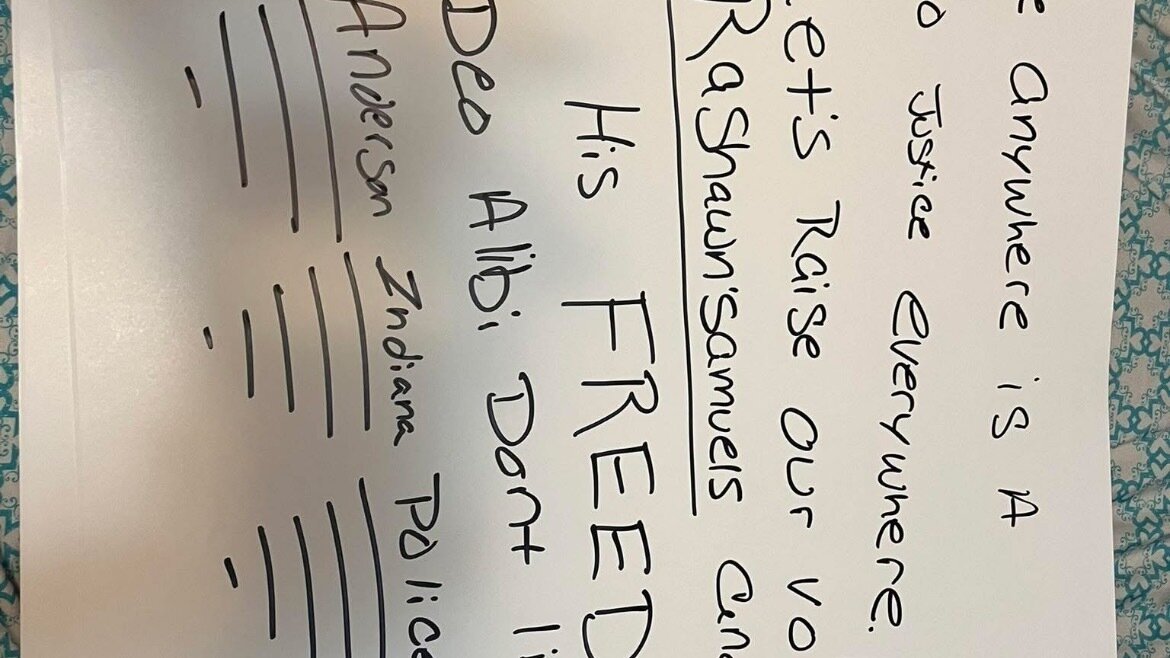 e anywhere is A
o Justice everywhere.
et's Raise our vo
RaShawn'samuels an
His FREED
Deo Alibi Dont li
Anderson Indiana Police